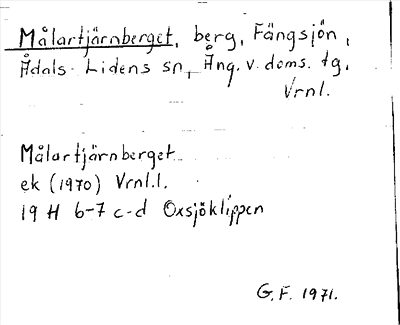 Målartjärnberget, berg, Fängsjön,
Ådals-Lidens sn, Ång. v. doms. tg,
Vrnl.
Målartjärnberget
ek (1970) Vrnl.l.
19 H 6-7 c-d Oxsjöklippen
G.F. 1971.